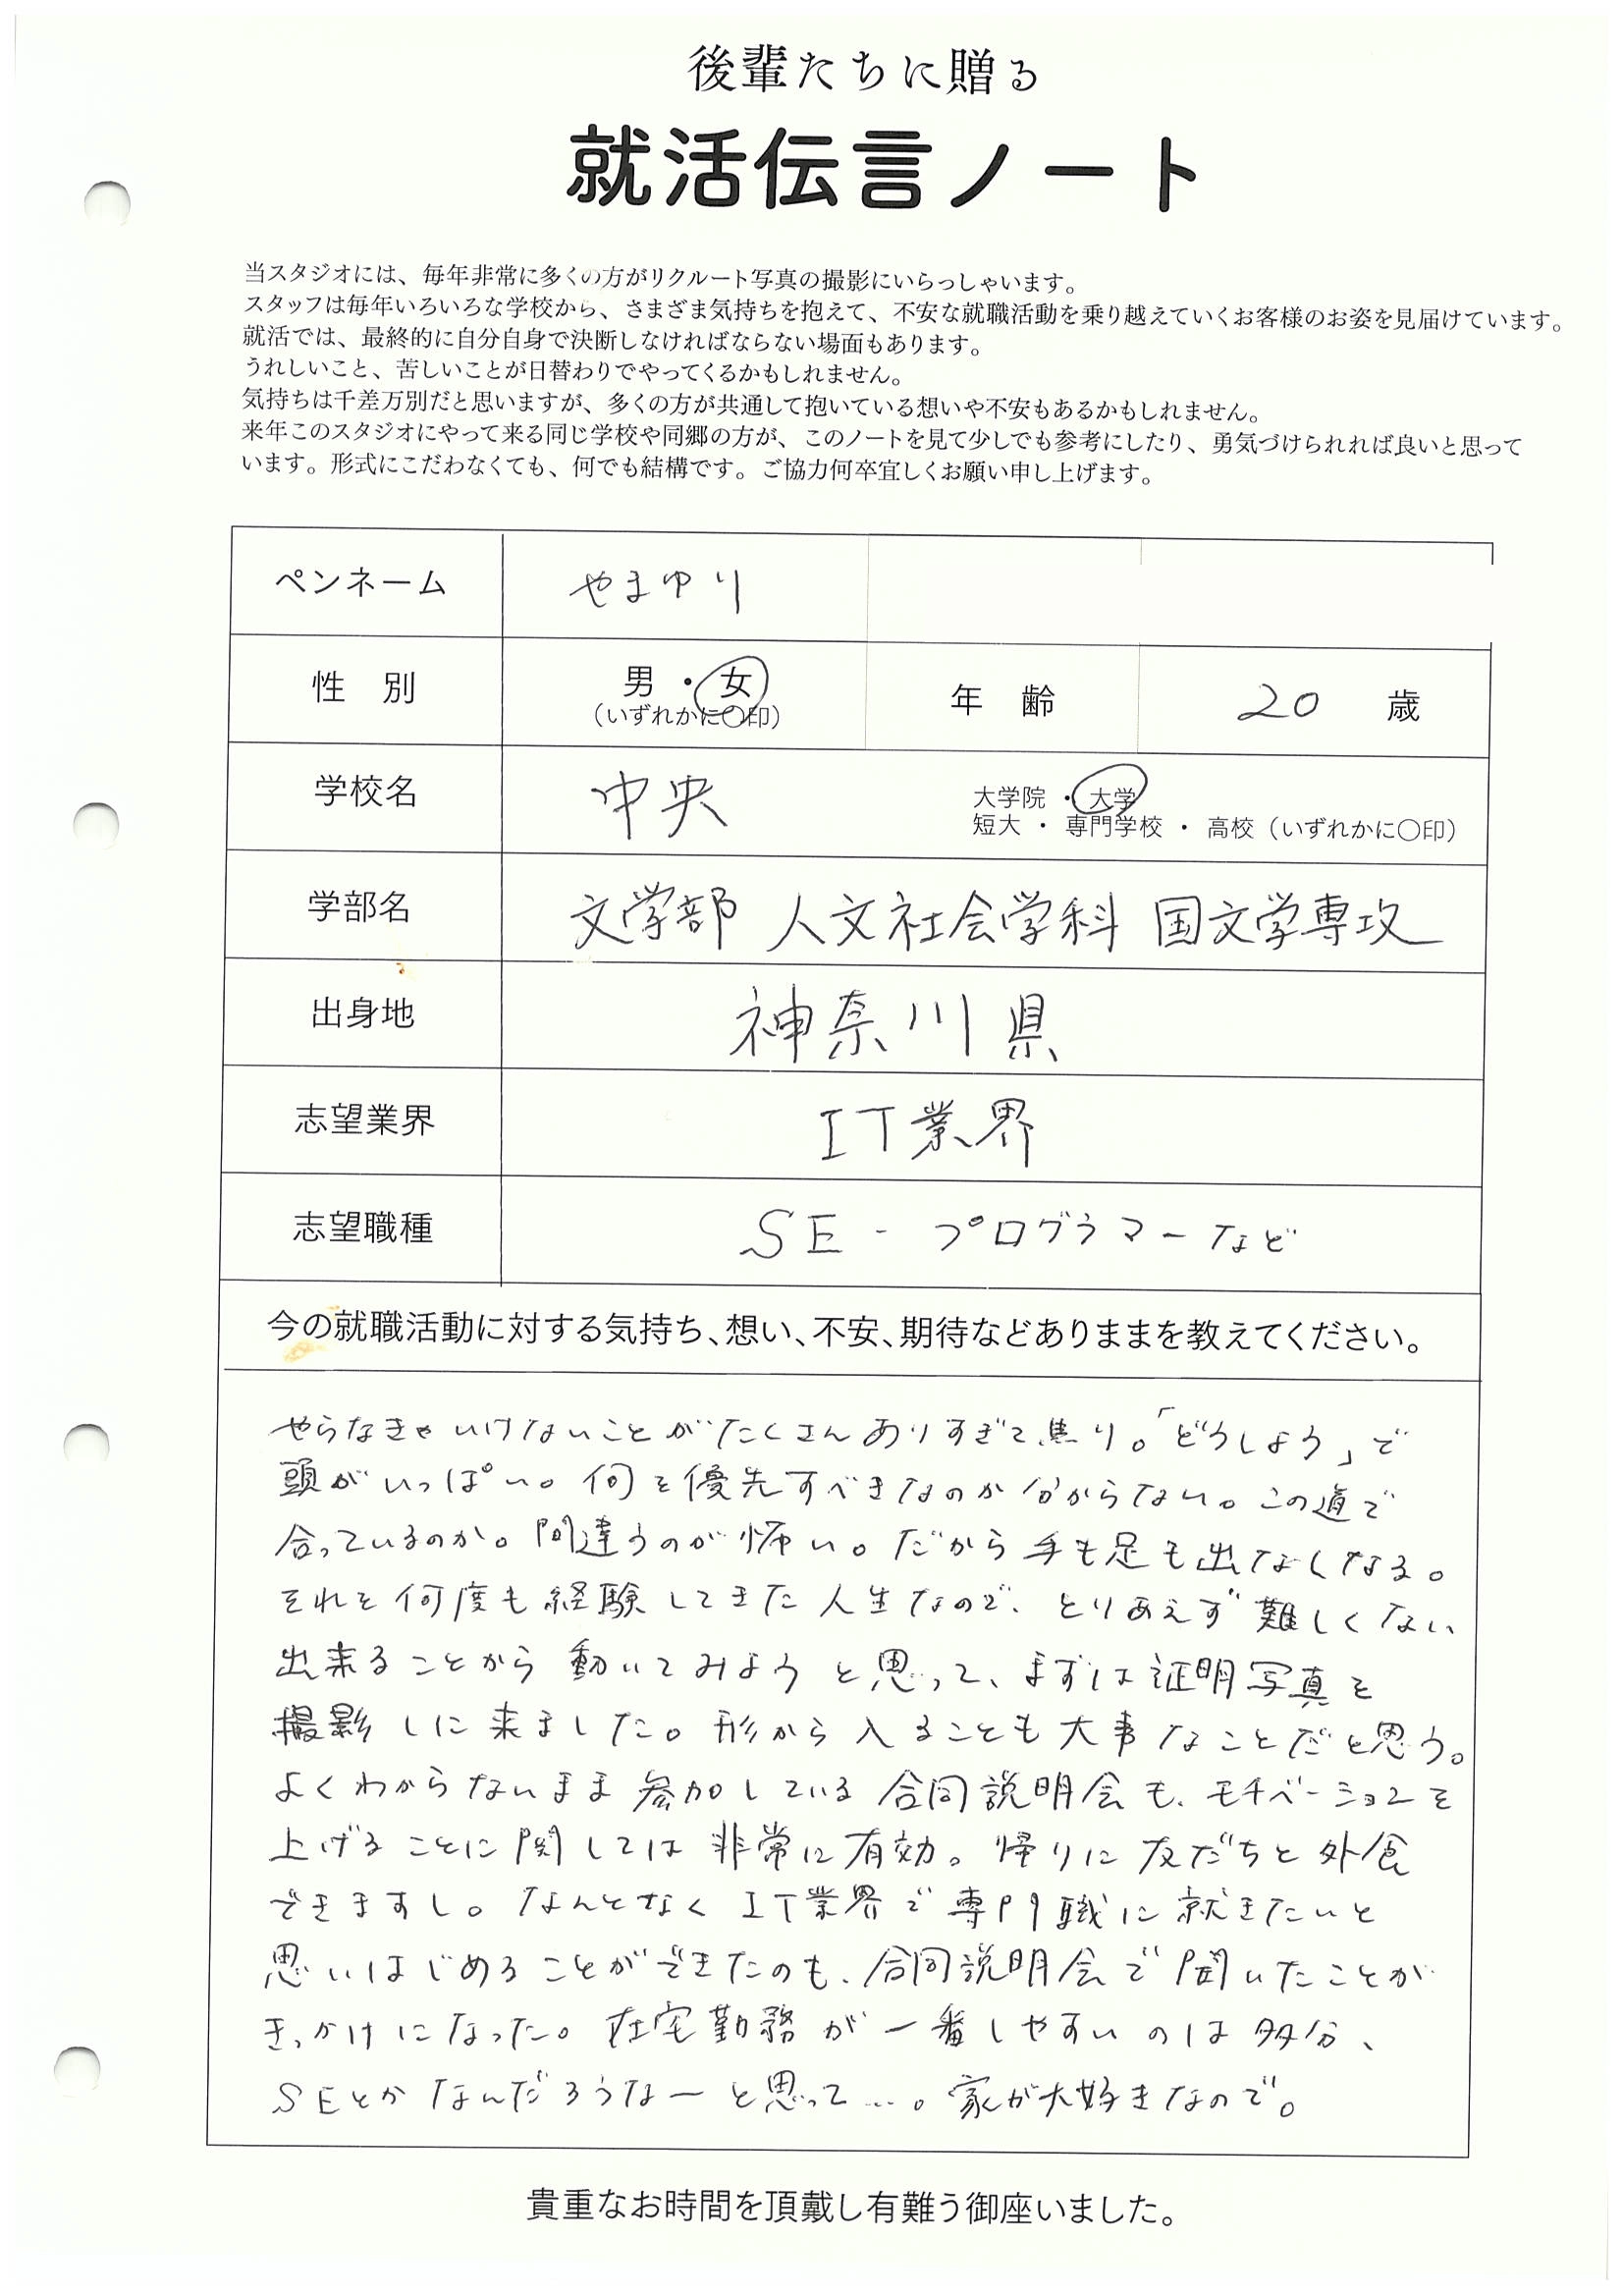 後輩たちに贈る
就活伝言ノート
当スタジオには、毎年非常に多くの方がリクルート写真の撮影にいらっしゃいます。
スタッフは毎年いろいろな学校から、さまざま気持ちを抱えて、不安な就職活動を乗り越えていくお客様のお姿を見届けています。
就活では、最終的に自分自身で決断しなければならない場面もあります。
うれしいこと、苦しいことが日替わりでやってくるかもしれません。
気持ちは千差万別だと思いますが、多くの方が共通して抱いている想いや不安もあるかもしれません。
来年このスタジオにやって来る同じ学校や同郷の方が、このノートを見て少しでも参考にしたり、勇気づけられれば良いと思って
います。形式にこだわなくても、何でも結構です。ご協力何卒宜しくお願い申し上げます。
ペンネーム やまゆり
性 別 男・女 (いずれかに〇印) 年 齢 20 歳
学校名 中央 大学院・大学
短大・専門学校・高校(いずれかに〇印)
学部名 文学部 人文社会学科 国文学専攻
出身地 神奈川県
志望業界 IT業界
志望職種 SE - プログラマーなど
今の就職活動に対する気持ち、想い、不安、期待などありままを教えてください。
やらなきゃいけないことがたくさんありすぎて焦り。「どうしよう」で
頭がいっぱい。何を優先すべきなのか分からない。この道で
合っているのか。間違うのが怖い。だから手も足も出なくなる。
それを何度も経験してきた人生なので、とりあえず難しくない
出来ることから動いてみようと思って、まずは証明写真を
撮影しに来ました。形から入ることも大事なことだと思う。
よくわからないまま参加している合同説明会も、モチベーションを
上げることに関しては非常に有効。帰りに友だちと外食
できますし。なんとなくIT業界で専門職に就きたいと
思いはじめることができたのも、合同説明会で聞いたことが
きっかけになった。在宅勤務が一番しやすいのは多分、
SEとかなんだろうなーと思って…。家が大好きなので。
貴重なお時間を頂戴し有難う御座いました。